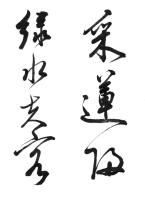 采蓮歸
綠水芙蓉